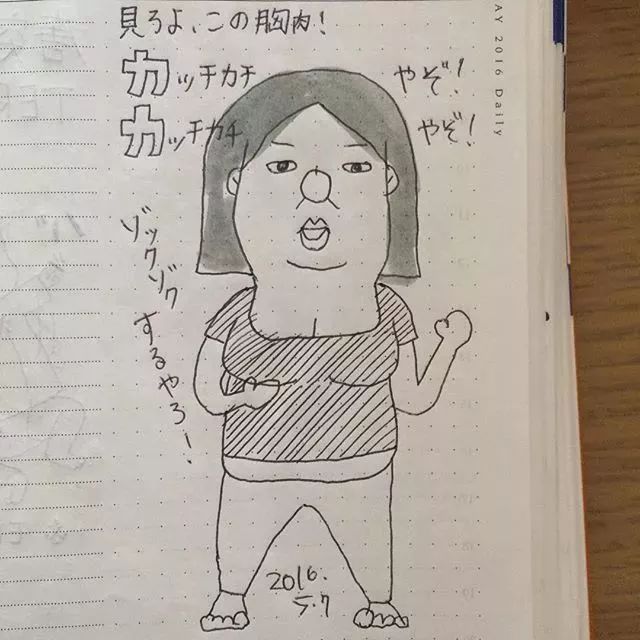 見ろよ、この胸肉!
カッチカチ やぞ!
カッチカチ やぞ!
ゾックゾクするやろ!
2016.
5.7
AY 2016 Daily